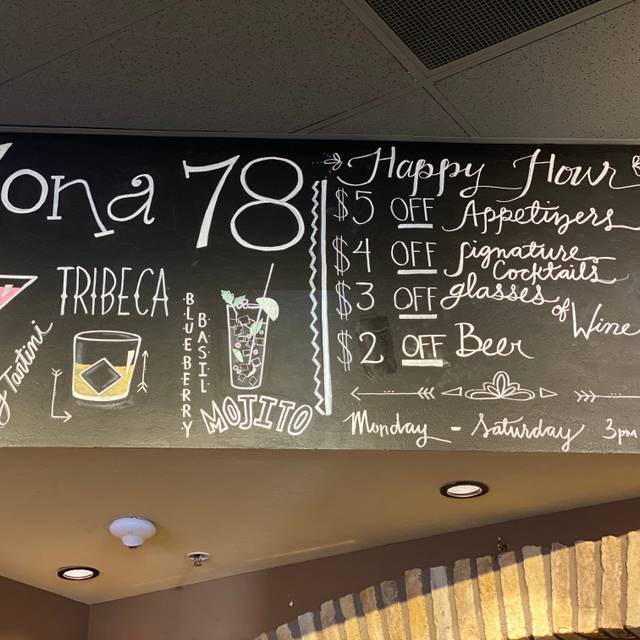 Zona 78
TRIBECA
BLUEBERRY
BASIL
MOJITO
Tartini
Happy Hour
$5 OFF Appetizers
$4 OFF Signature Cocktails
$3 OFF glasses of Wine
$2 OFF Beer
Monday - Saturday 3pm